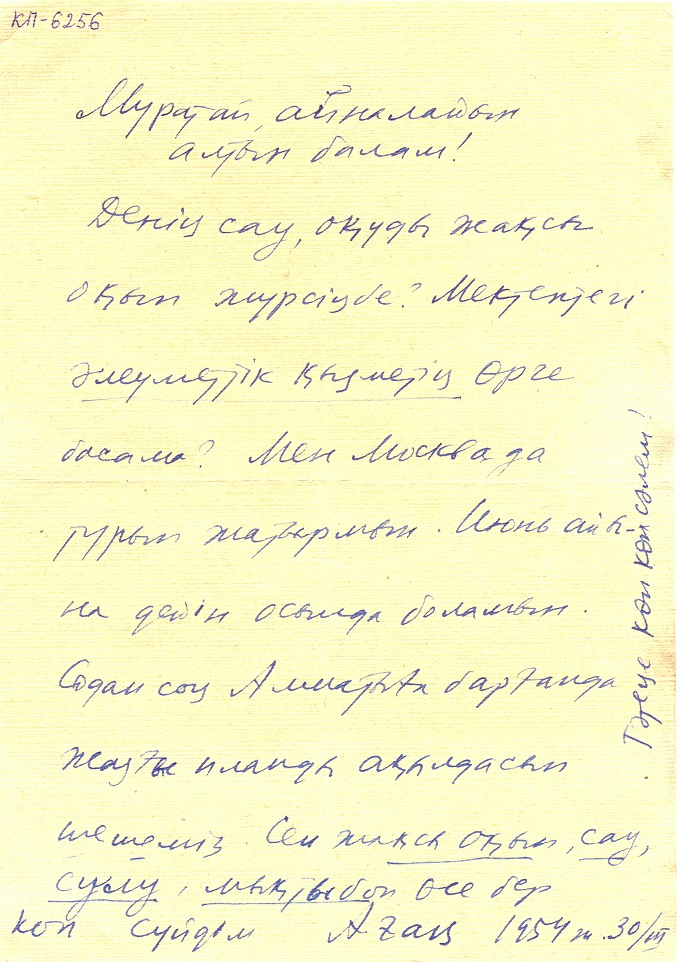 КП-6256
Муратай, айналайын
алтын балам!
Денің сау, оқуды жақсы
оқып жүрсіңбе? Мектептегі
әлеуметтік қызметің өрге
босама? Мен Москвада
тұрып жатырмын. Июнь айы-
на дейін осында боламын.
Содан соң Алматыға барғанда
жазғы планды ақылдасып
шешеміз. Сен жақсы оқып, сау,
сұлу, мықты боп өсе бер
көп сүйдім Ағаң 1954 ж. 30/III
Тәтеңе көп көп сәлем!